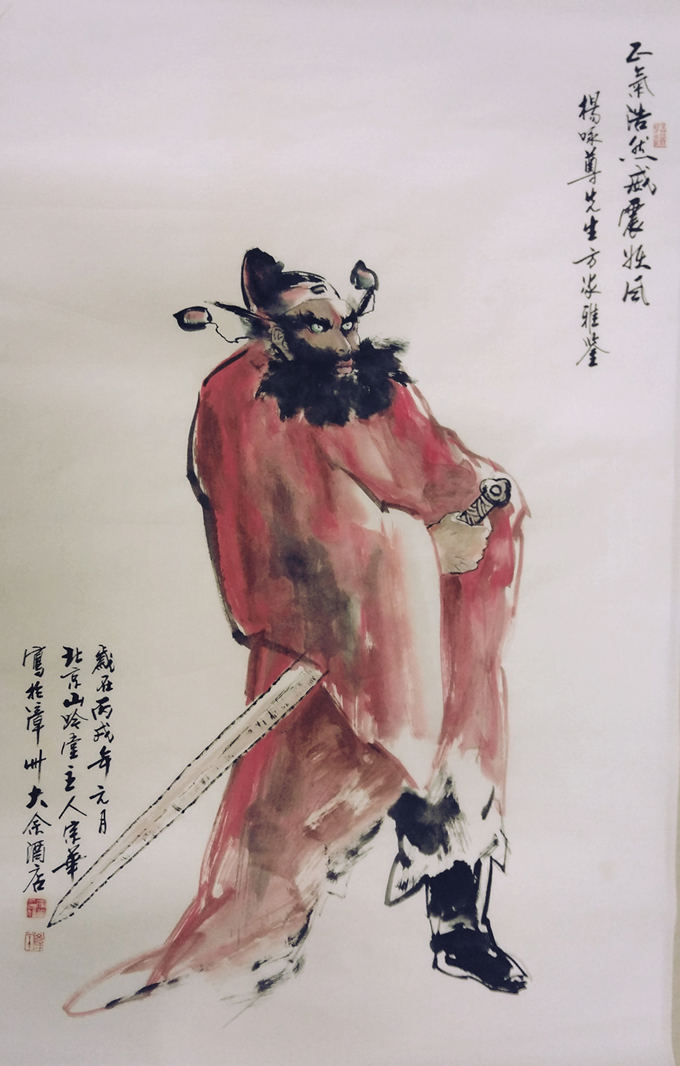 正氣浩然威震妖風
楊咏尊先生方家雅鑒
歲在丙戌年元月
北京山吟堂主人宗華
寫於漳州大余酒店